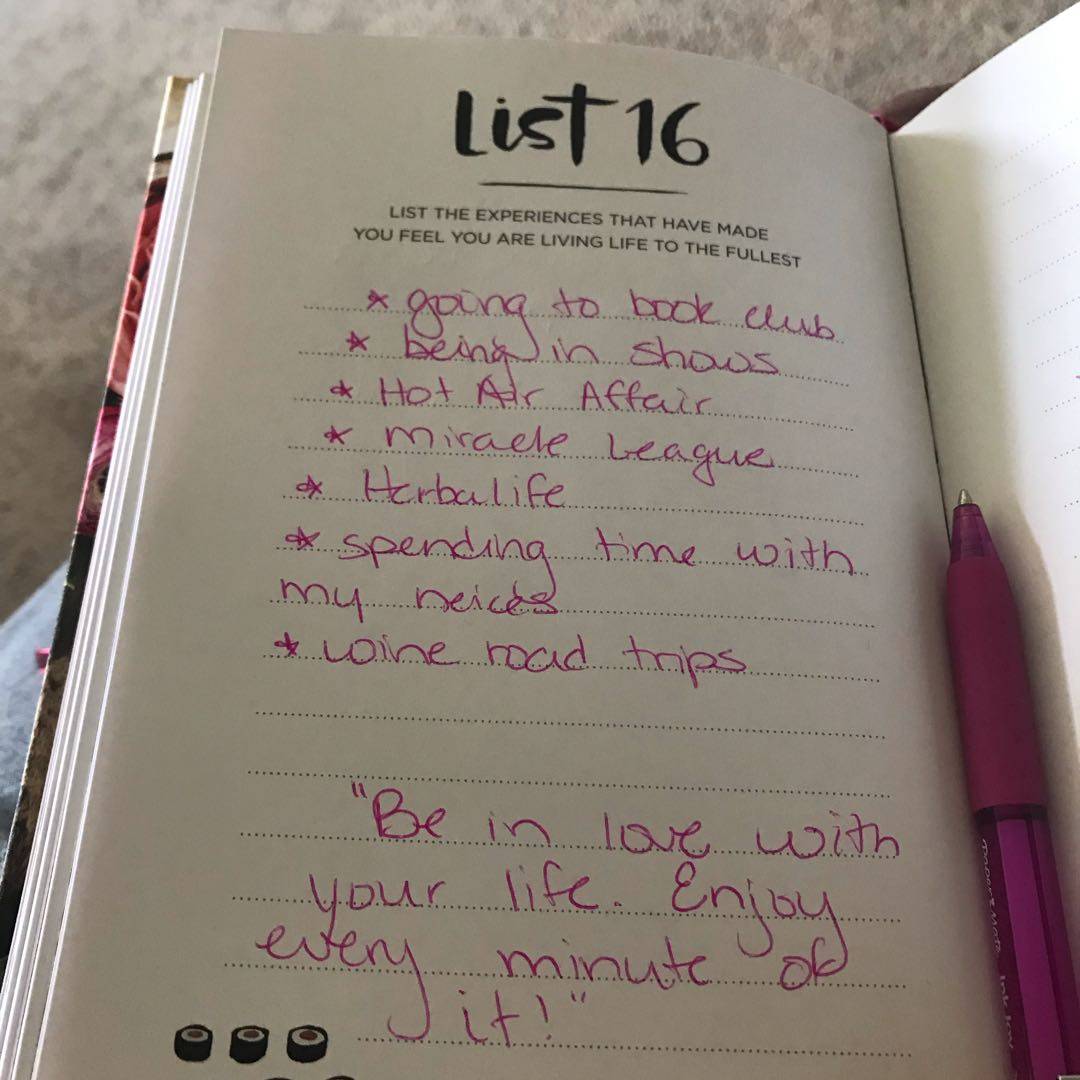 List 16
LIST THE EXPERIENCES THAT HAVE MADE
YOU FEEL YOU ARE LIVING LIFE TO THE FULLEST
* going to book club
* being in shows
* Hot Air Affair
* miracle League
* Herbalife
* spending time with
my neices
* wine road trips
"Be in love with
your life. Enjoy
every minute of
it!"
PAPER MATE InkJoy